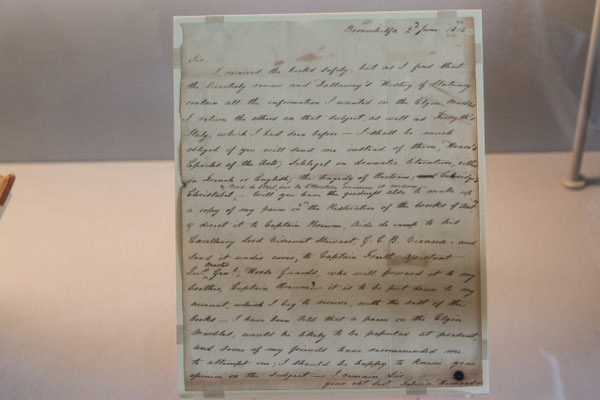 Bronwhilfa 2d June 1816
Sir,
I received the books safely, but as I find that
the Quarterly review and Dallaway's History of Statuary
contain all the information I wanted on the Elgin Marbles
I return the others on that subject, as well as Forsyth's
Italy, which I had seen before — I shall be much
obliged if you will send me instead of them, Hoare's
Epochs of the Arts; Schlegel on dramatic literature, either
in French or English; the tragedy of Bertram; and Coleridge's
Christabel — Will you have the goodness also to make up
a copy of my poem on the Restoration of the works of Art,
& direct it to Captain Browne, Aide de camp to his
Excellency Lord Viscount Stewart G. C. B. Vienna, and
send it under cover, to Captain Freeth, Assistant
Qur. Master Genl., Horse Guards, who will forward it to my
brother, Captain Browne — it is to be put down to my
account, which I beg to receive, with the rest of the
books — I have been told that a poem on the Elgin
Marbles, would be likely to be popular at present
and some of my friends have recommended me
to attempt one; I should be happy to know your
opinion on the subject — I remain, Sir,
your obt. servt. Felicia Hemans